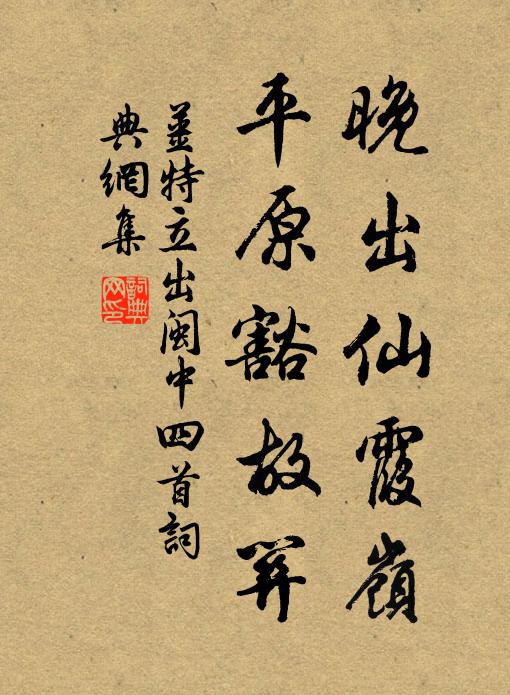 晚出仙霞嶺
平原豁故開
薑特立出閩中四首詞
典網集
詞典
网印